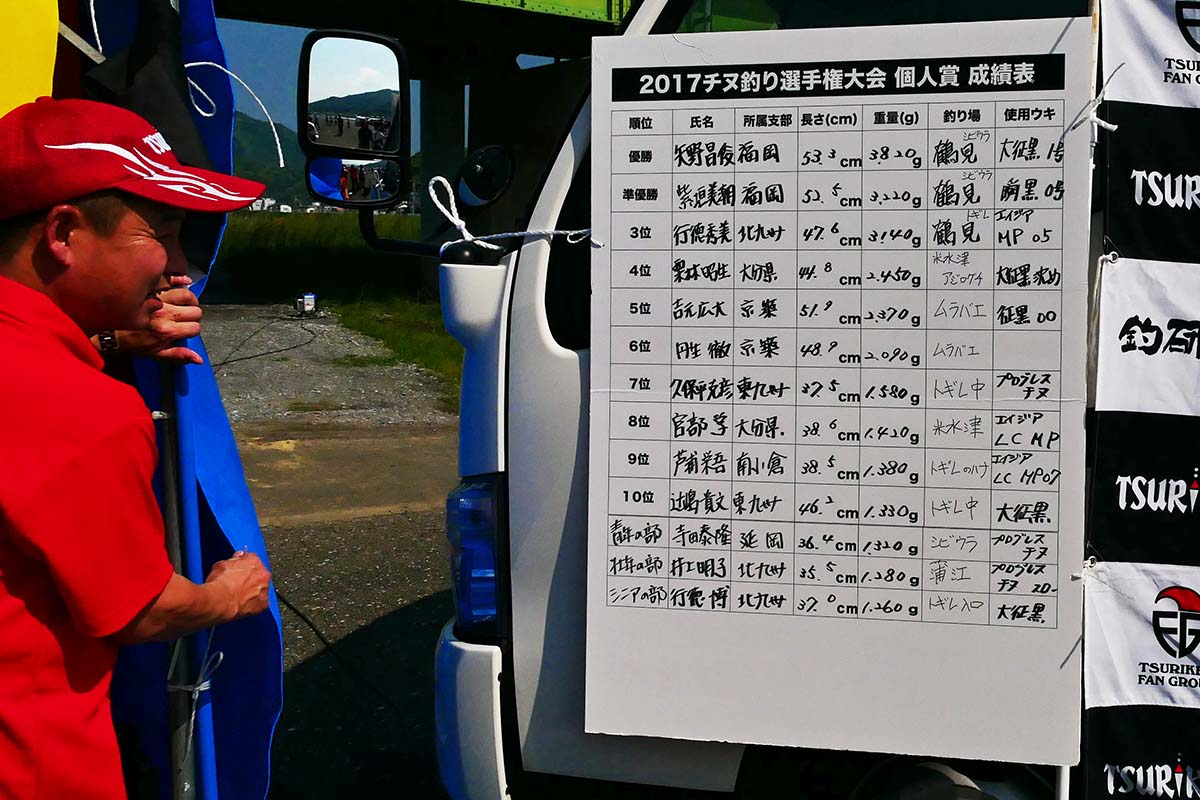 2017チヌ釣り選手権大会 個人賞 成績表
順位 氏名 所属支部 長さ(cm) 重量(g) 釣り場 使用ウキ
優勝 矢野昌俊 福岡 53.3cm 3.820g 鶴見 シビウラ 大征黒 1号
準優勝 福岡 52.5cm 3.220g 鶴見 シビウラ 瞬黒 0号
3位 行徳秀美 北九州 47.6cm 3.140g 鶴見 トギレ エイジア MP 05
4位 栗林昭生 大分県 44.8cm 2.450g 米水津 アジロクチ 大征黒
5位 吉元広大 京築 51.9cm 2.370g ムラバエ 征黒 00
6位 丹生 徹 京築 48.9cm 2.090g ムラバエ
7位 久保克彦 東九州 37.5cm 1.580g トギレ中 プログレス チヌ
8位 宮部 大分県 38.6cm 1.420g 米水津 エイジア LC MP
9位 芦浦 南小倉 38.5cm 1.380g トギレのハナ エイジア LC MP07
10位 辻嶋貴文 東九州 46.2cm 1.330g トギレ中 大征黒
青年の部 寺田泰隆 延岡 36.4cm 1.320g シビウラ プログレス チヌ
壮年の部 井上明子 北九州 35.5cm 1.280g 蒲江 プログレス チヌ
シニアの部 行徳 博 北九州 37.0cm 1.260g トギレ入口 大征黒
TSURI
釣研
TSURIKE
FAN GROU
TSURIK